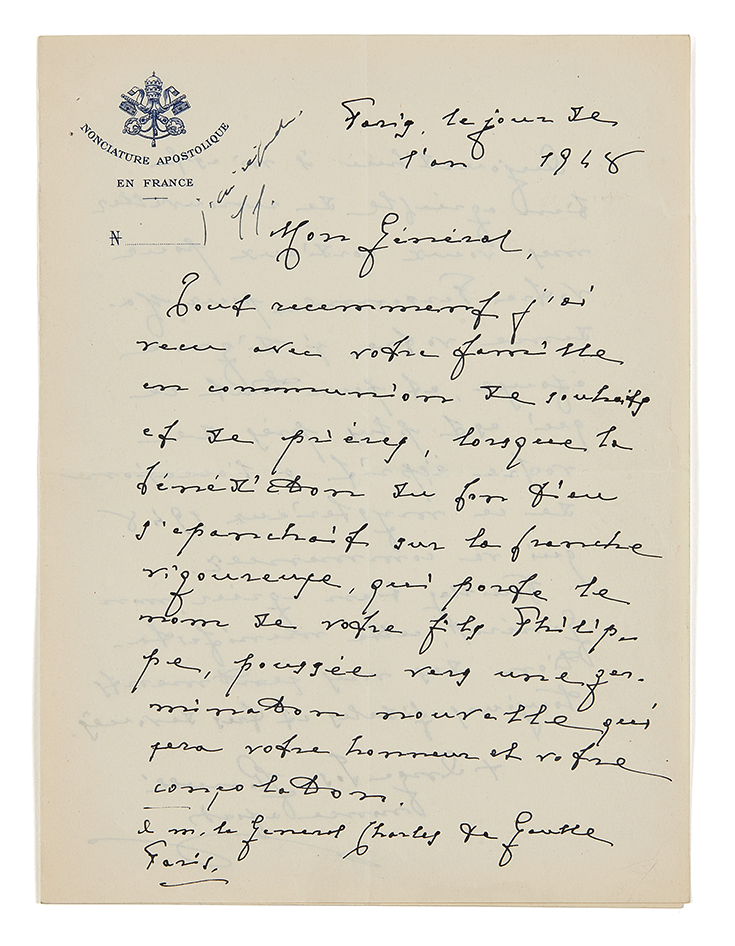 NONCIATURE APOSTOLIQUE
EN FRANCE
N
Paris, le jour de
l'an 1948
Mon Général,
Tout recemment j'ai
recu avec votre famille
en communion de souhaits
et de prières, lorsque la
bénédiction du bon Dieu
s'epanchait sur la franche
vigoureuse, qui porte le
nom de votre fils Philip-
pe, poussée vers une ger-
mination nouvelle qui
sera votre honneur et votre
consolation.
à m. le General Charles de Gaulle
Paris.